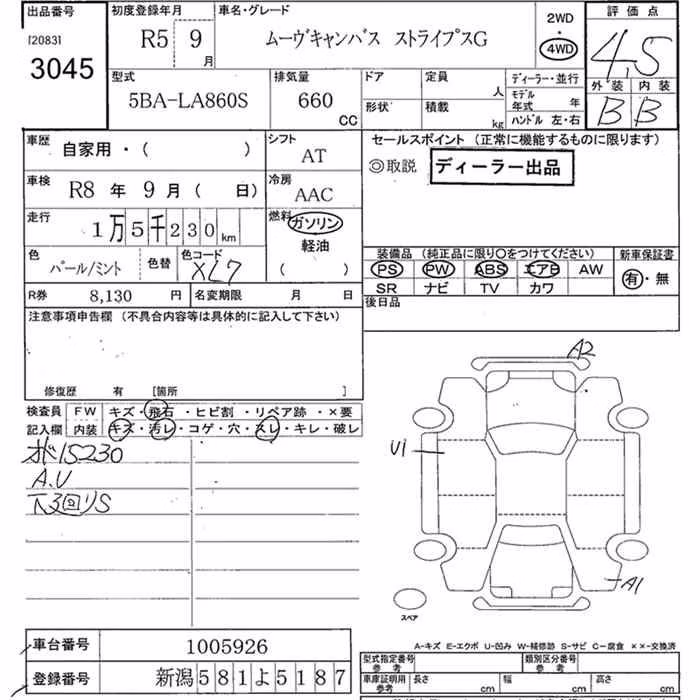 出品番号
[2083]
3045
初度登録年月
R5 9月
車名・グレード
ムーヴキャンバス ストライプスG
2WD
・
4WD
評価点
4.5
外装 内装
B B
型式
5BA-LA860S
排気量
660 CC
ドア
形状
定員 人
積載 kg
ディーラー・並行
モデル年式 年
ハンドル 左・右
車歴
自家用・( )
車検
R8 年 9 月 ( 日)
走行
1万5千230km
シフト
AT
冷房
AAC
燃料
ガソリン
軽油
( )
色
パール/ミント
色替
色コード
XL7
R券 8,130 円
名変期限 月 日
セールスポイント (正常に機能するものに限ります)
◎取説 ディーラー出品
装備品 (純正品に限り〇をつけてください)
PS PW ABS エアB AW
SR ナビ TV カワ
新車保証書
有・無
後日品
注意事項申告欄 (不具合内容等は具体的に記入して下さい)
修復歴 有 [箇所 ]
検査員記入欄
FW キズ・飛石・ヒビ割・リペア跡・×要
内装 キズ・汚レ・コゲ・穴・スレ・キレ・破レ
オド15230
A.U
下3回りS
A2
U1
A1
スペア
A-キズ E-エクボ U-凹み W-補修跡 S-サビ C-腐食 ××-交換済
車台番号 1005926
登録番号 新潟581よ5187
型式指定番号 参考
類別区分番号 参考
車庫証明用 参考
長さ cm
幅 cm
高さ cm